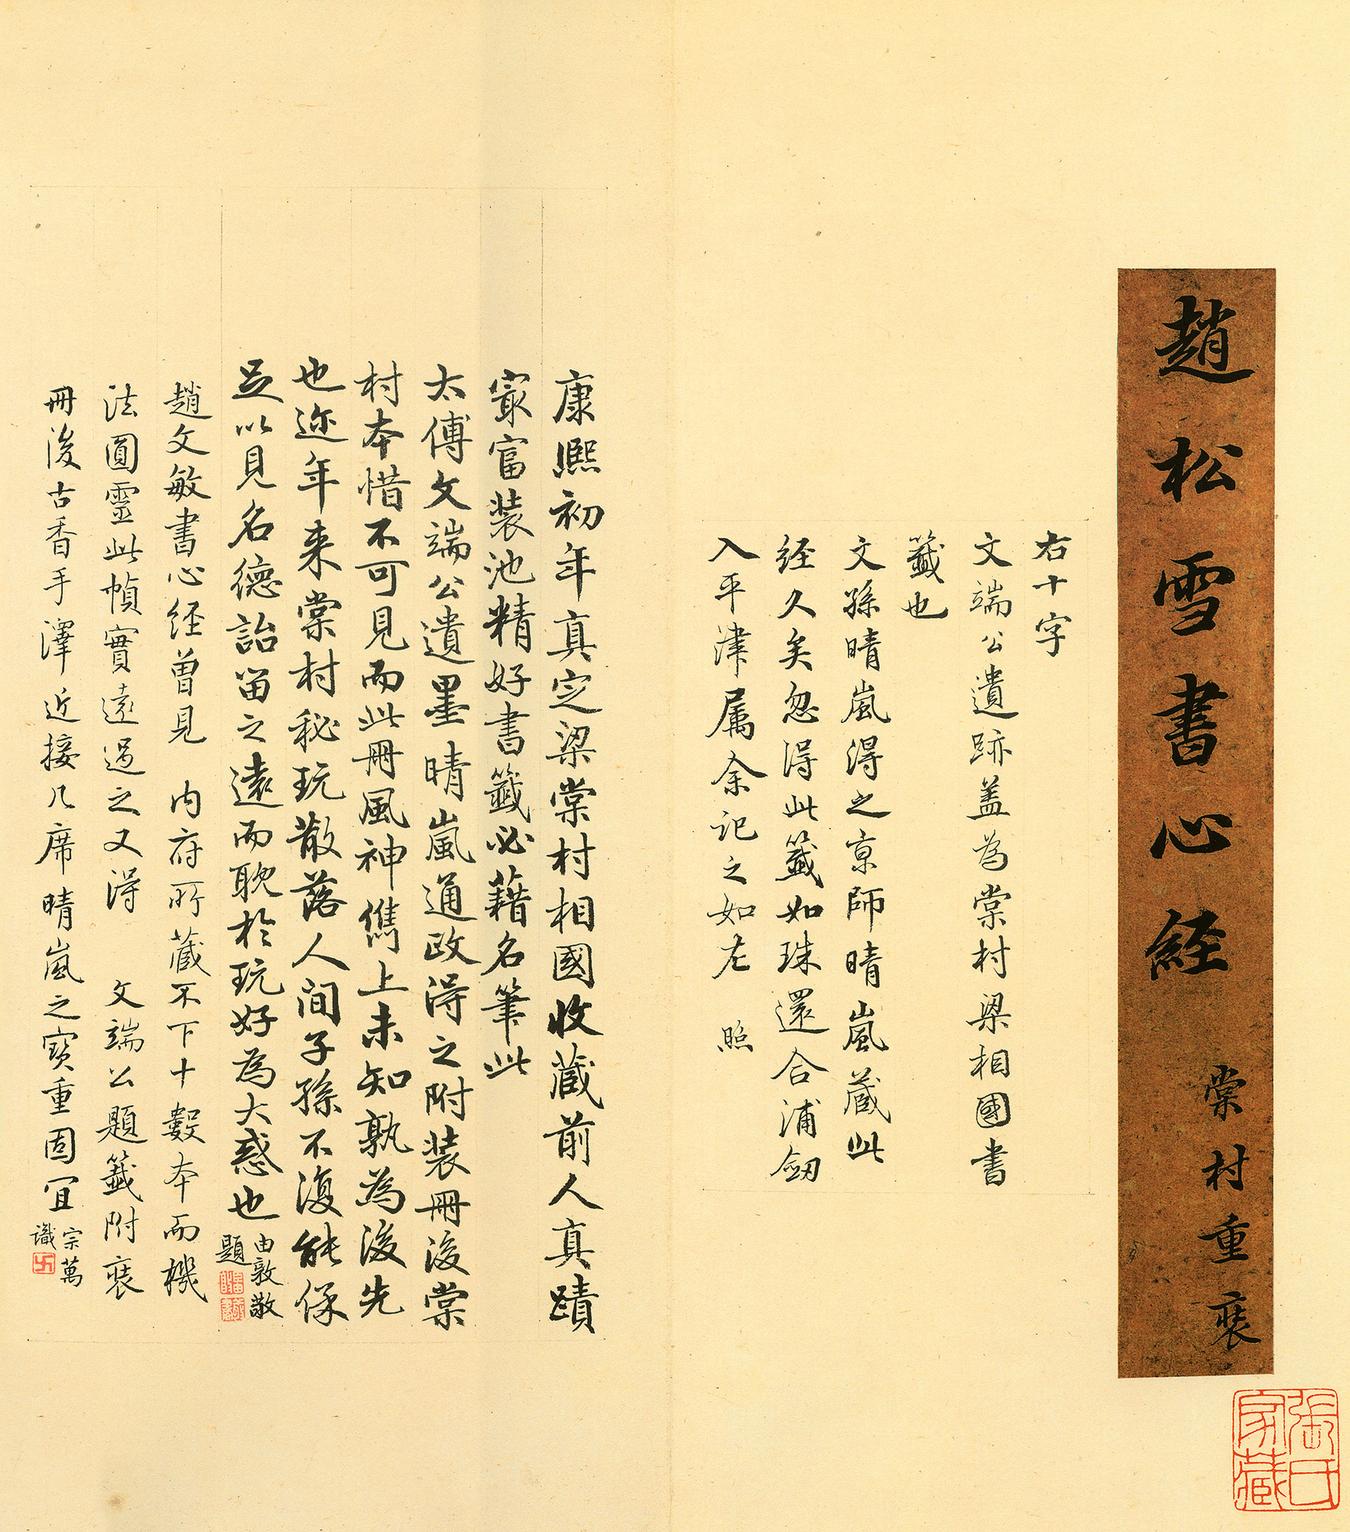 趙松雪書心経
棠村重裝
張氏
家藏
右十字
文端公遺跡蓋為棠村梁相國書
籤也
文孫晴嵐得之京師晴嵐蔵此
経久矣忽得此籤如珠還合浦劒
入平津属余記之如左 照
康熙初年真定梁棠村相國收蔵前人真蹟
冣富装池精好書籤必藉名筆此
太傅文端公遺墨晴嵐通政得之附装冊後棠
村本惜不可見而此冊風神儁上未知孰為後先
也迩年来棠村秘玩散落人间子孫不復能保
足以見名德詒留之遠而耽於玩好為大惑也
由敦敬
題
趙文敏書心経曽見 内府所蔵不下十數本而機
法圓靈此幀實遠過之又得 文端公題籤附裝
冊後古香手澤近接几席晴嵐之寶重固宜
宗萬
識
卐